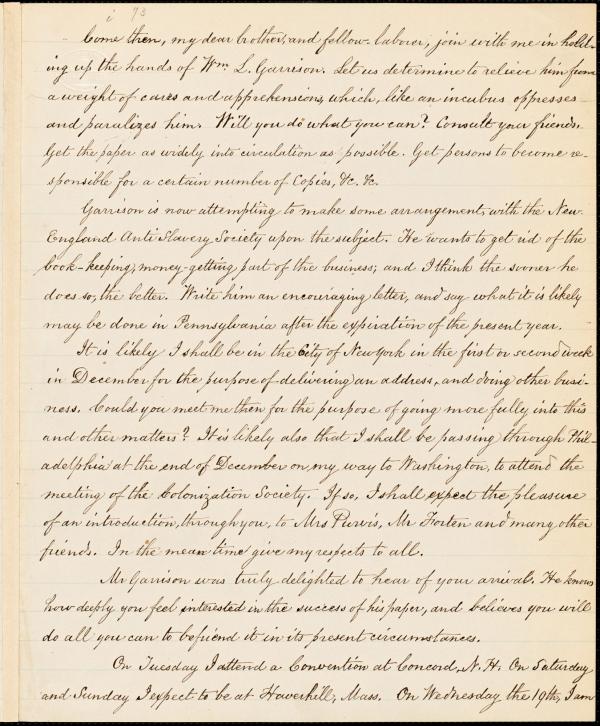 73
Come then, my dear brother, and fellow-laborer, join with me in hold-
ing up the hands of Wm. L. Garrison. Let us determine to relieve him from
a weight of cares and apprehensions, which, like an incubus oppresses
and paralizes him. Will you do what you can? Consult your friends.
Get the paper as widely into circulation as possible. Get persons to become re-
sponsible for a certain number of Copies, &c. &c.
Garrison is now attempting to make some arrangement, with the New-
England Anti Slavery Society upon the subject. He wants to get rid of the
book-keeping, money-getting part of the business; and I think the sooner he
does so, the better. Write him an encouraging letter, and say what it is likely
may be done in Pennsylvania after the expiration of the present year.
It is likely I shall be in the City of New York in the first or second week
in December for the purpose of delivering an address, and doing other busi-
ness. Could you meet me then for the purpose of going more fully into this
and other matters? It is likely also that I shall be passing through Phil-
adelphia at the end of December on my way to Washington, to attend the
meeting of the Colonization Society. If so, I shall expect the pleasure
of an introduction, through you, to Mrs Purvis, Mr Forten and many other
friends. In the mean time give my respects to all.
Mr Garrison was truly delighted to hear of your arrival. He knows
how deeply you feel interested in the success of his paper, and believes you will
do all you can to befriend it in its present circumstances.
On Tuesday I attend a Convention at Concord, N. H. On Saturday
and Sunday I expect to be at Haverhill, Mass. On Wednesday the 19th, I am